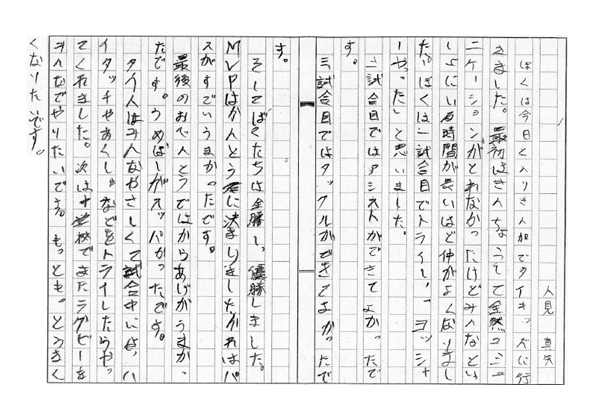 人見 真矢
ぼくは今日と入りさん加でタイキッズに行
きました。最初はきんちょうして全然コミュ
ニケーションがとれなかったけどみんなとい
っしょにいる時間が長いほど仲がよくなりまし
た。ぼくは一試合目でトライし、「ヨッシャ
ーやった」と思いました。
二試合目ではアシストができてよかったで
す。
三試合目ではタックルができてよかったで
す。
そしてぼくたちは全勝し、優勝しました。
MVPはかんとう君に決まりましたかれはパ
スがすごいうまかったです。
最後のおべんとうではからあげがうまかっ
たです。うめぼしがスッパかったです。
タイ人はみんなやさしくて試合中には、ハ
イタッチやあくしゅなどをトライしたらやっ
てくれました。次は中学校でまたラグビーを
みんなでやりたいです。もっともっとうまく
くなりたいです。